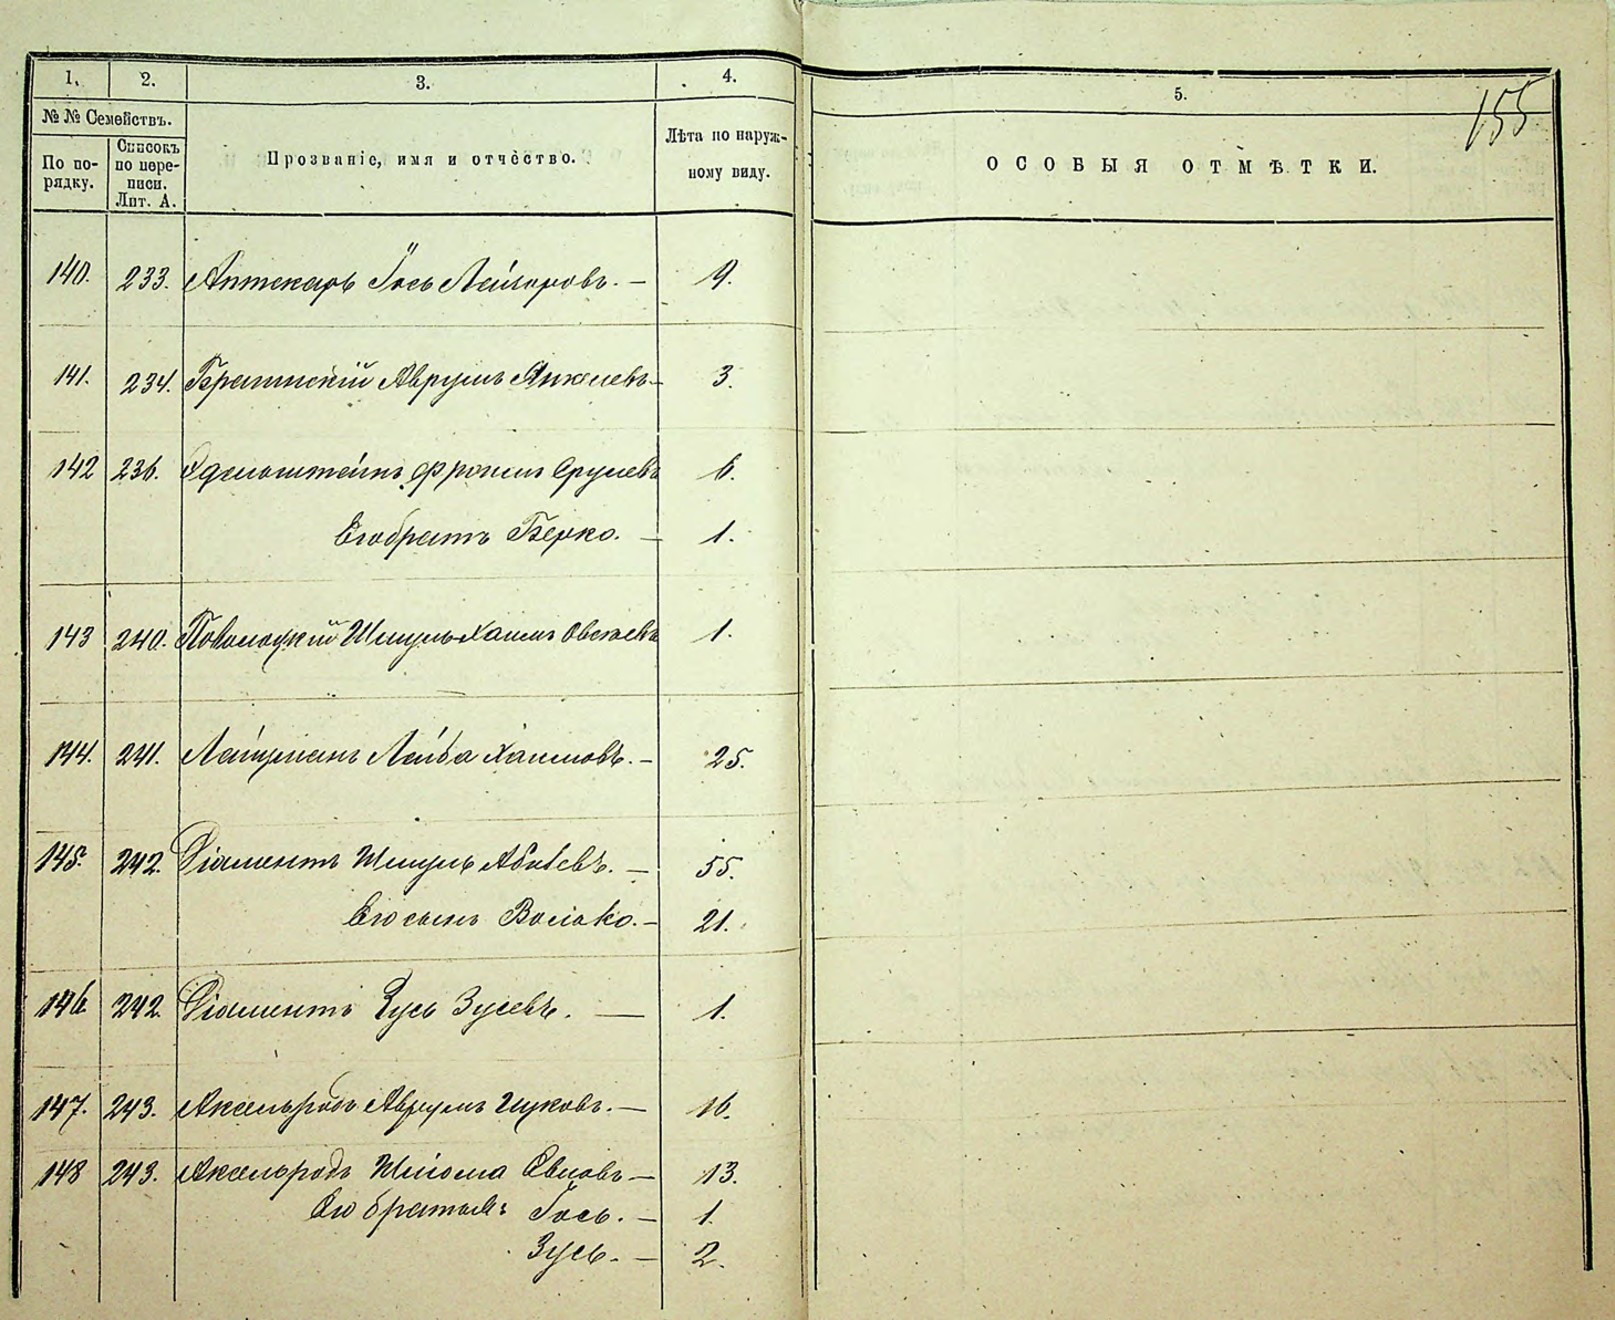 1. 2. 3. 4. 5. 155
№ № Семействъ.
По порядку. Списокъ по переписи. Лит. А. Прозваніе, имя и отчество. Лѣта по наружному виду. ОСОБЫЯ ОТМѢТКИ.
140. 233. Аптекарь Іось Лейзоровъ. — 9.
141. 234. Аврумъ Янкелевъ — 3.
142 236. Эдельштейнъ Фроимъ Срулевъ 6.
Его братъ Берко. — 1.
143 240. Поволоцкій Шмуль Хаимъ 1.
144. 241. Лейба Хаимовъ. — 25.
145. 242. Діаментъ Шмуль — 55.
Его сынъ Волько. — 21.
146 242. Діаментъ Зусь Зусевъ. — 1.
147. 243. Аксельродъ Аврумъ Ицковъ. — 16.
148 243. Аксельродъ Шлома — 13.
Его братья: Іось. — 1.
Зусь. — 2.